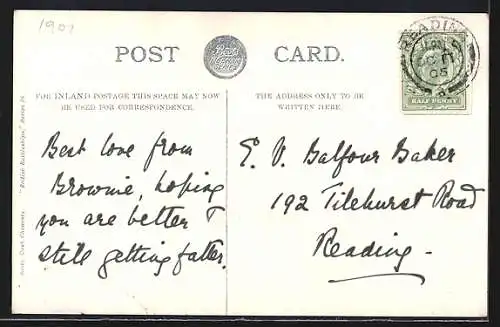 1907
POST CARD.
READING
OC 11
05
HALF PENNY
FOR INLAND POSTAGE THIS SPACE MAY NOW
BE USED FOR CORRESPONDENCE.
THE ADDRESS ONLY TO BE
WRITTEN HERE.
Best love from
Brownie, hoping
you are better &
still getting fatter.
E. V. Balfour Baker
192 Tilehurst Road
Reading -
"British Battleships," Series